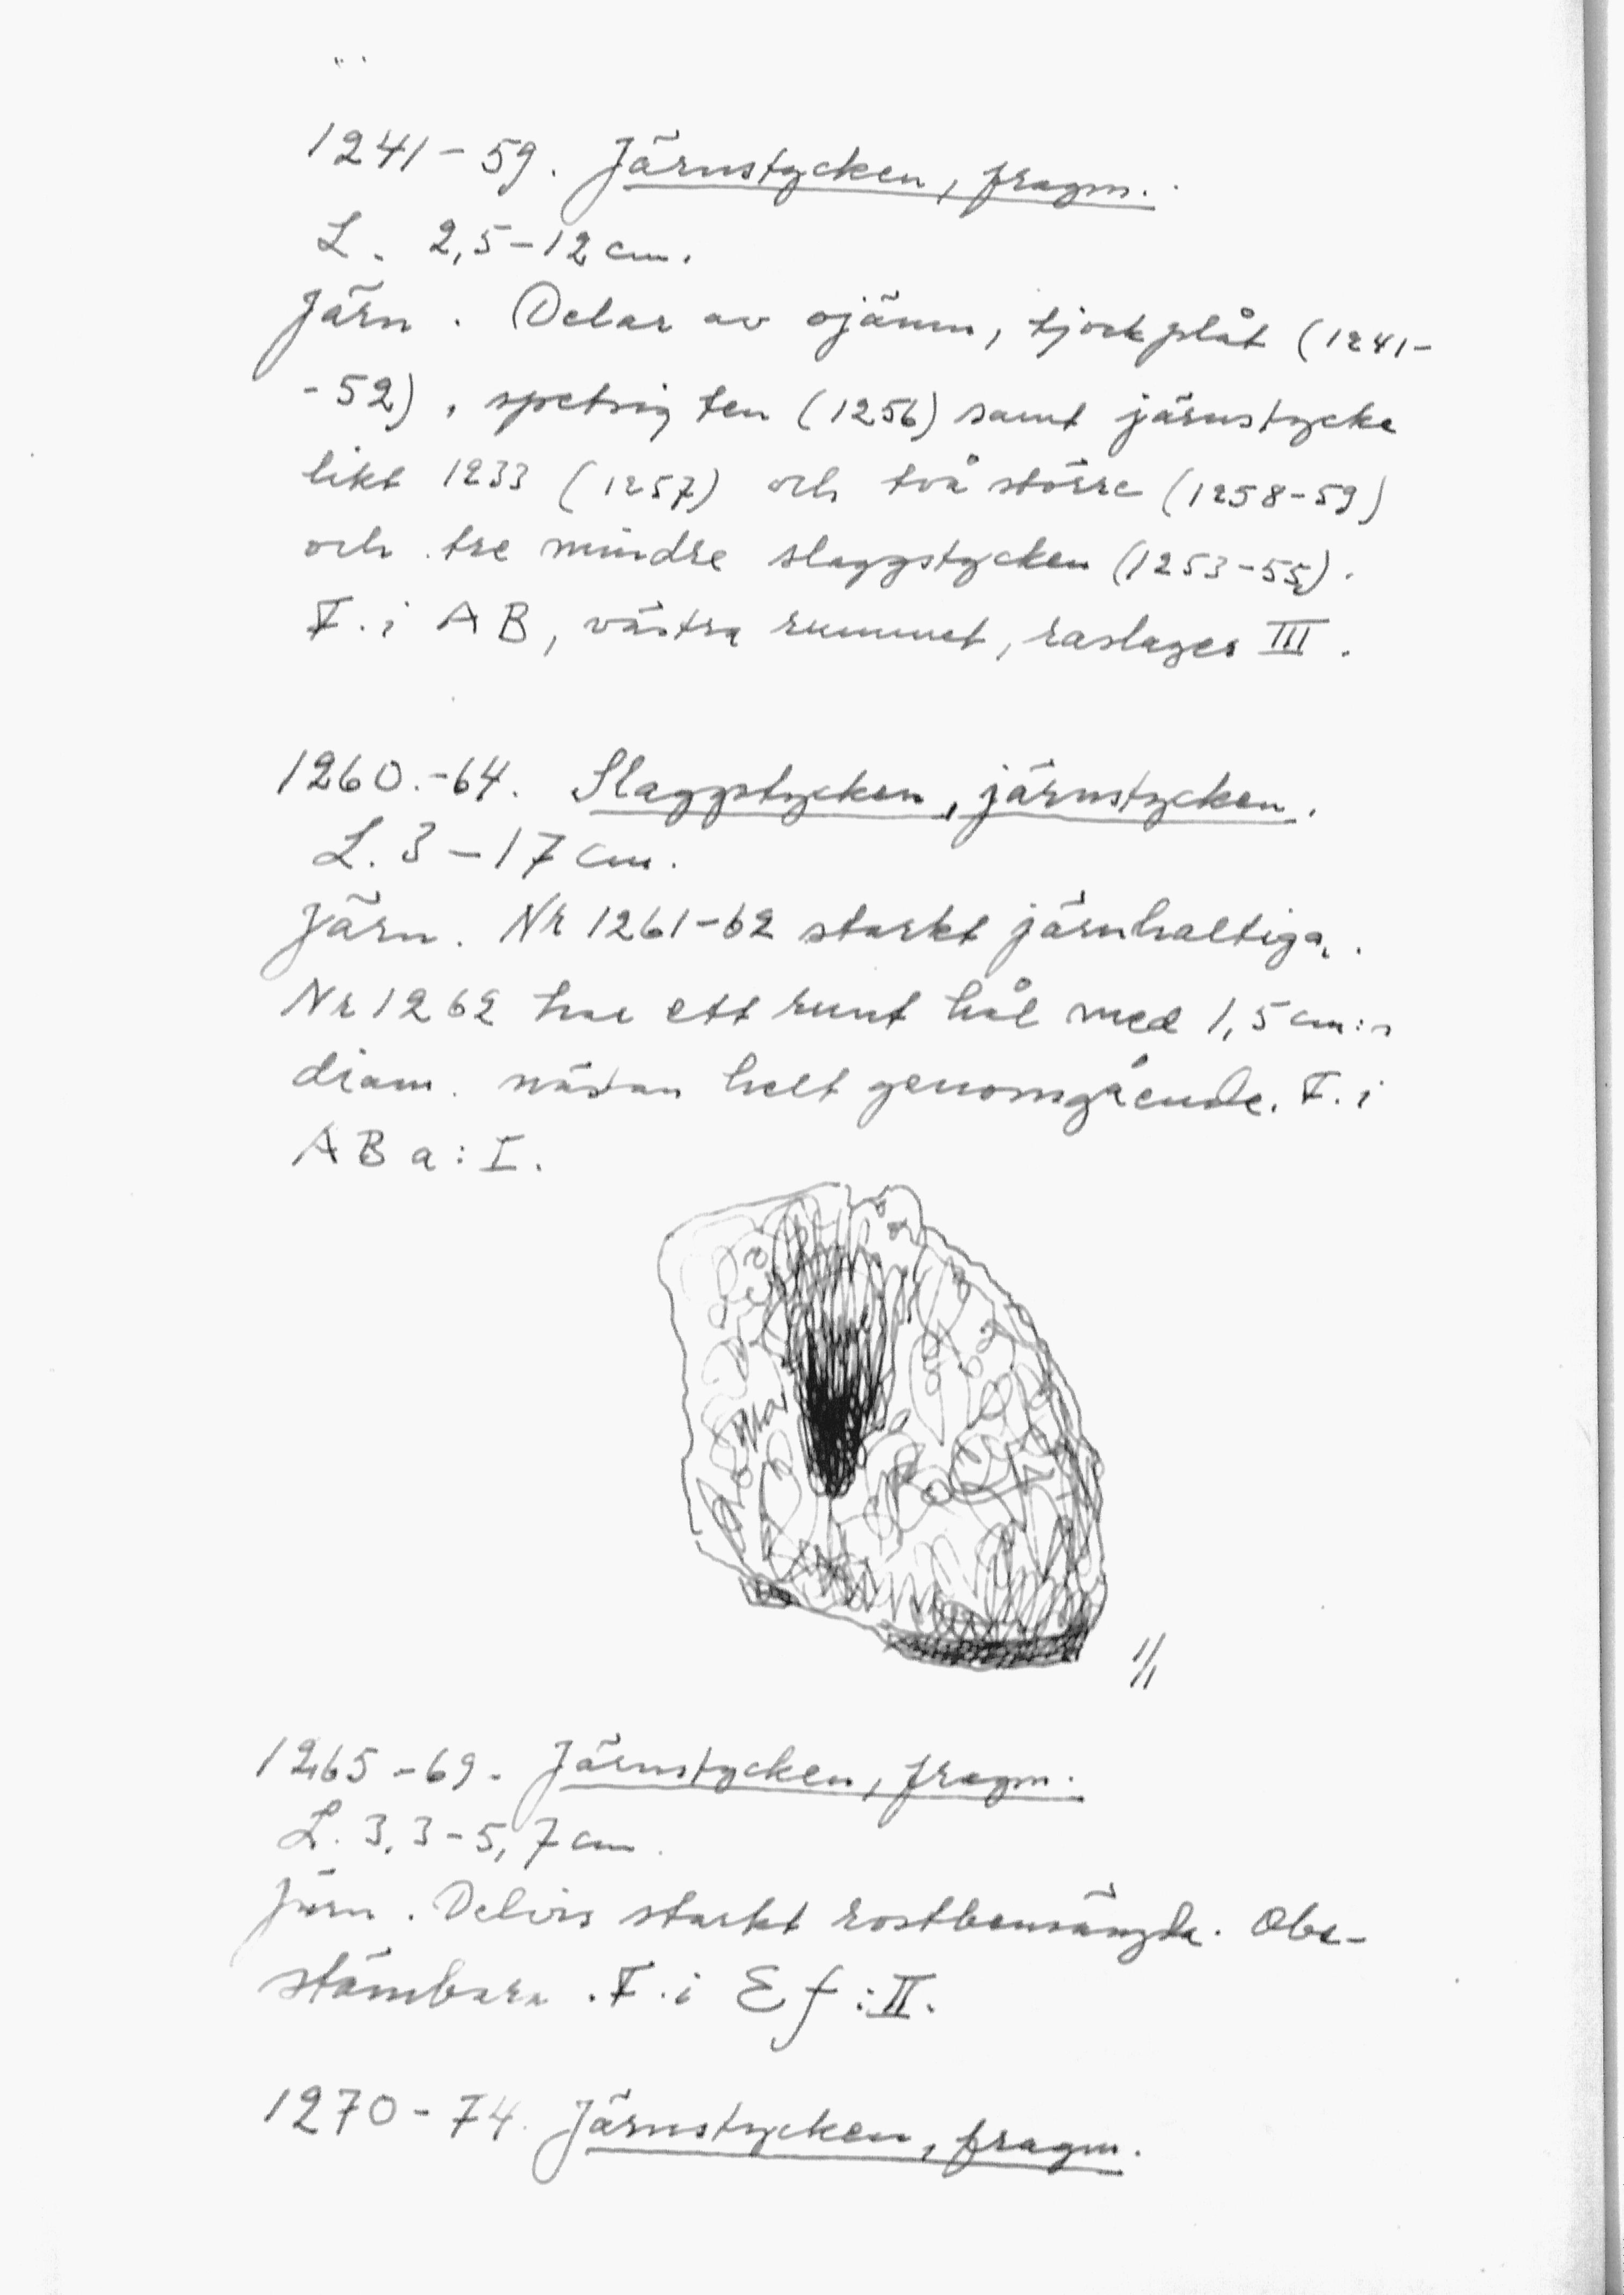 1241-59. Järnstycken, fragm.
L. 2,5-12 cm.
Järn. Delar av ojämn, tjock plåt (1241-
-52), spetsig ten (1256) samt järnstycke
likt 1233 (1257) och två större (1258-59)
och tre mindre slaggstycken (1253-55).
F. i AB, västra rummet, raslager III.
1260.-64. Slaggstycken, järnstycken.
L. 3-17 cm.
Järn. Nr 1261-62 starkt järnhaltiga.
Nr 1262 har ett runt hål med 1,5 cm:s
diam. nästan helt genomgående. F. i
AB a:I.
1/1
1265-69. Järnstycken, fragm.
L. 3,3-5,7 cm.
Järn. Delvis starkt rostbemängda. Obe-
stämbara. F. i Ef:II.
1270-74. Järnstycken, fragm.